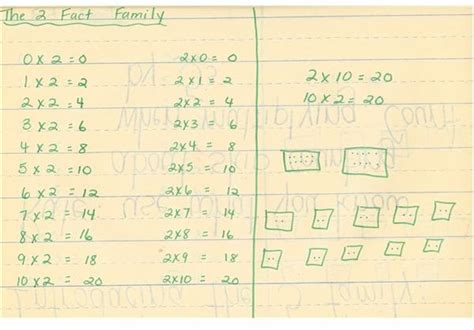 The 2 Fact Family
0 x 2 = 0
1 x 2 = 2
2 x 2 = 4
3 x 2 = 6
4 x 2 = 8
5 x 2 = 10
6 x 2 = 12
7 x 2 = 14
8 x 2 = 16
9 x 2 = 18
10 x 2 = 20
2x0 = 0
2x1 = 2
2x2 = 4
2x3 = 6
2x4 = 8
2x5 = 10
2x6 = 12
2x7 = 14
2x8 = 16
2x9 = 18
2x10 = 20
2 x 10 = 20
10 x 2 = 20